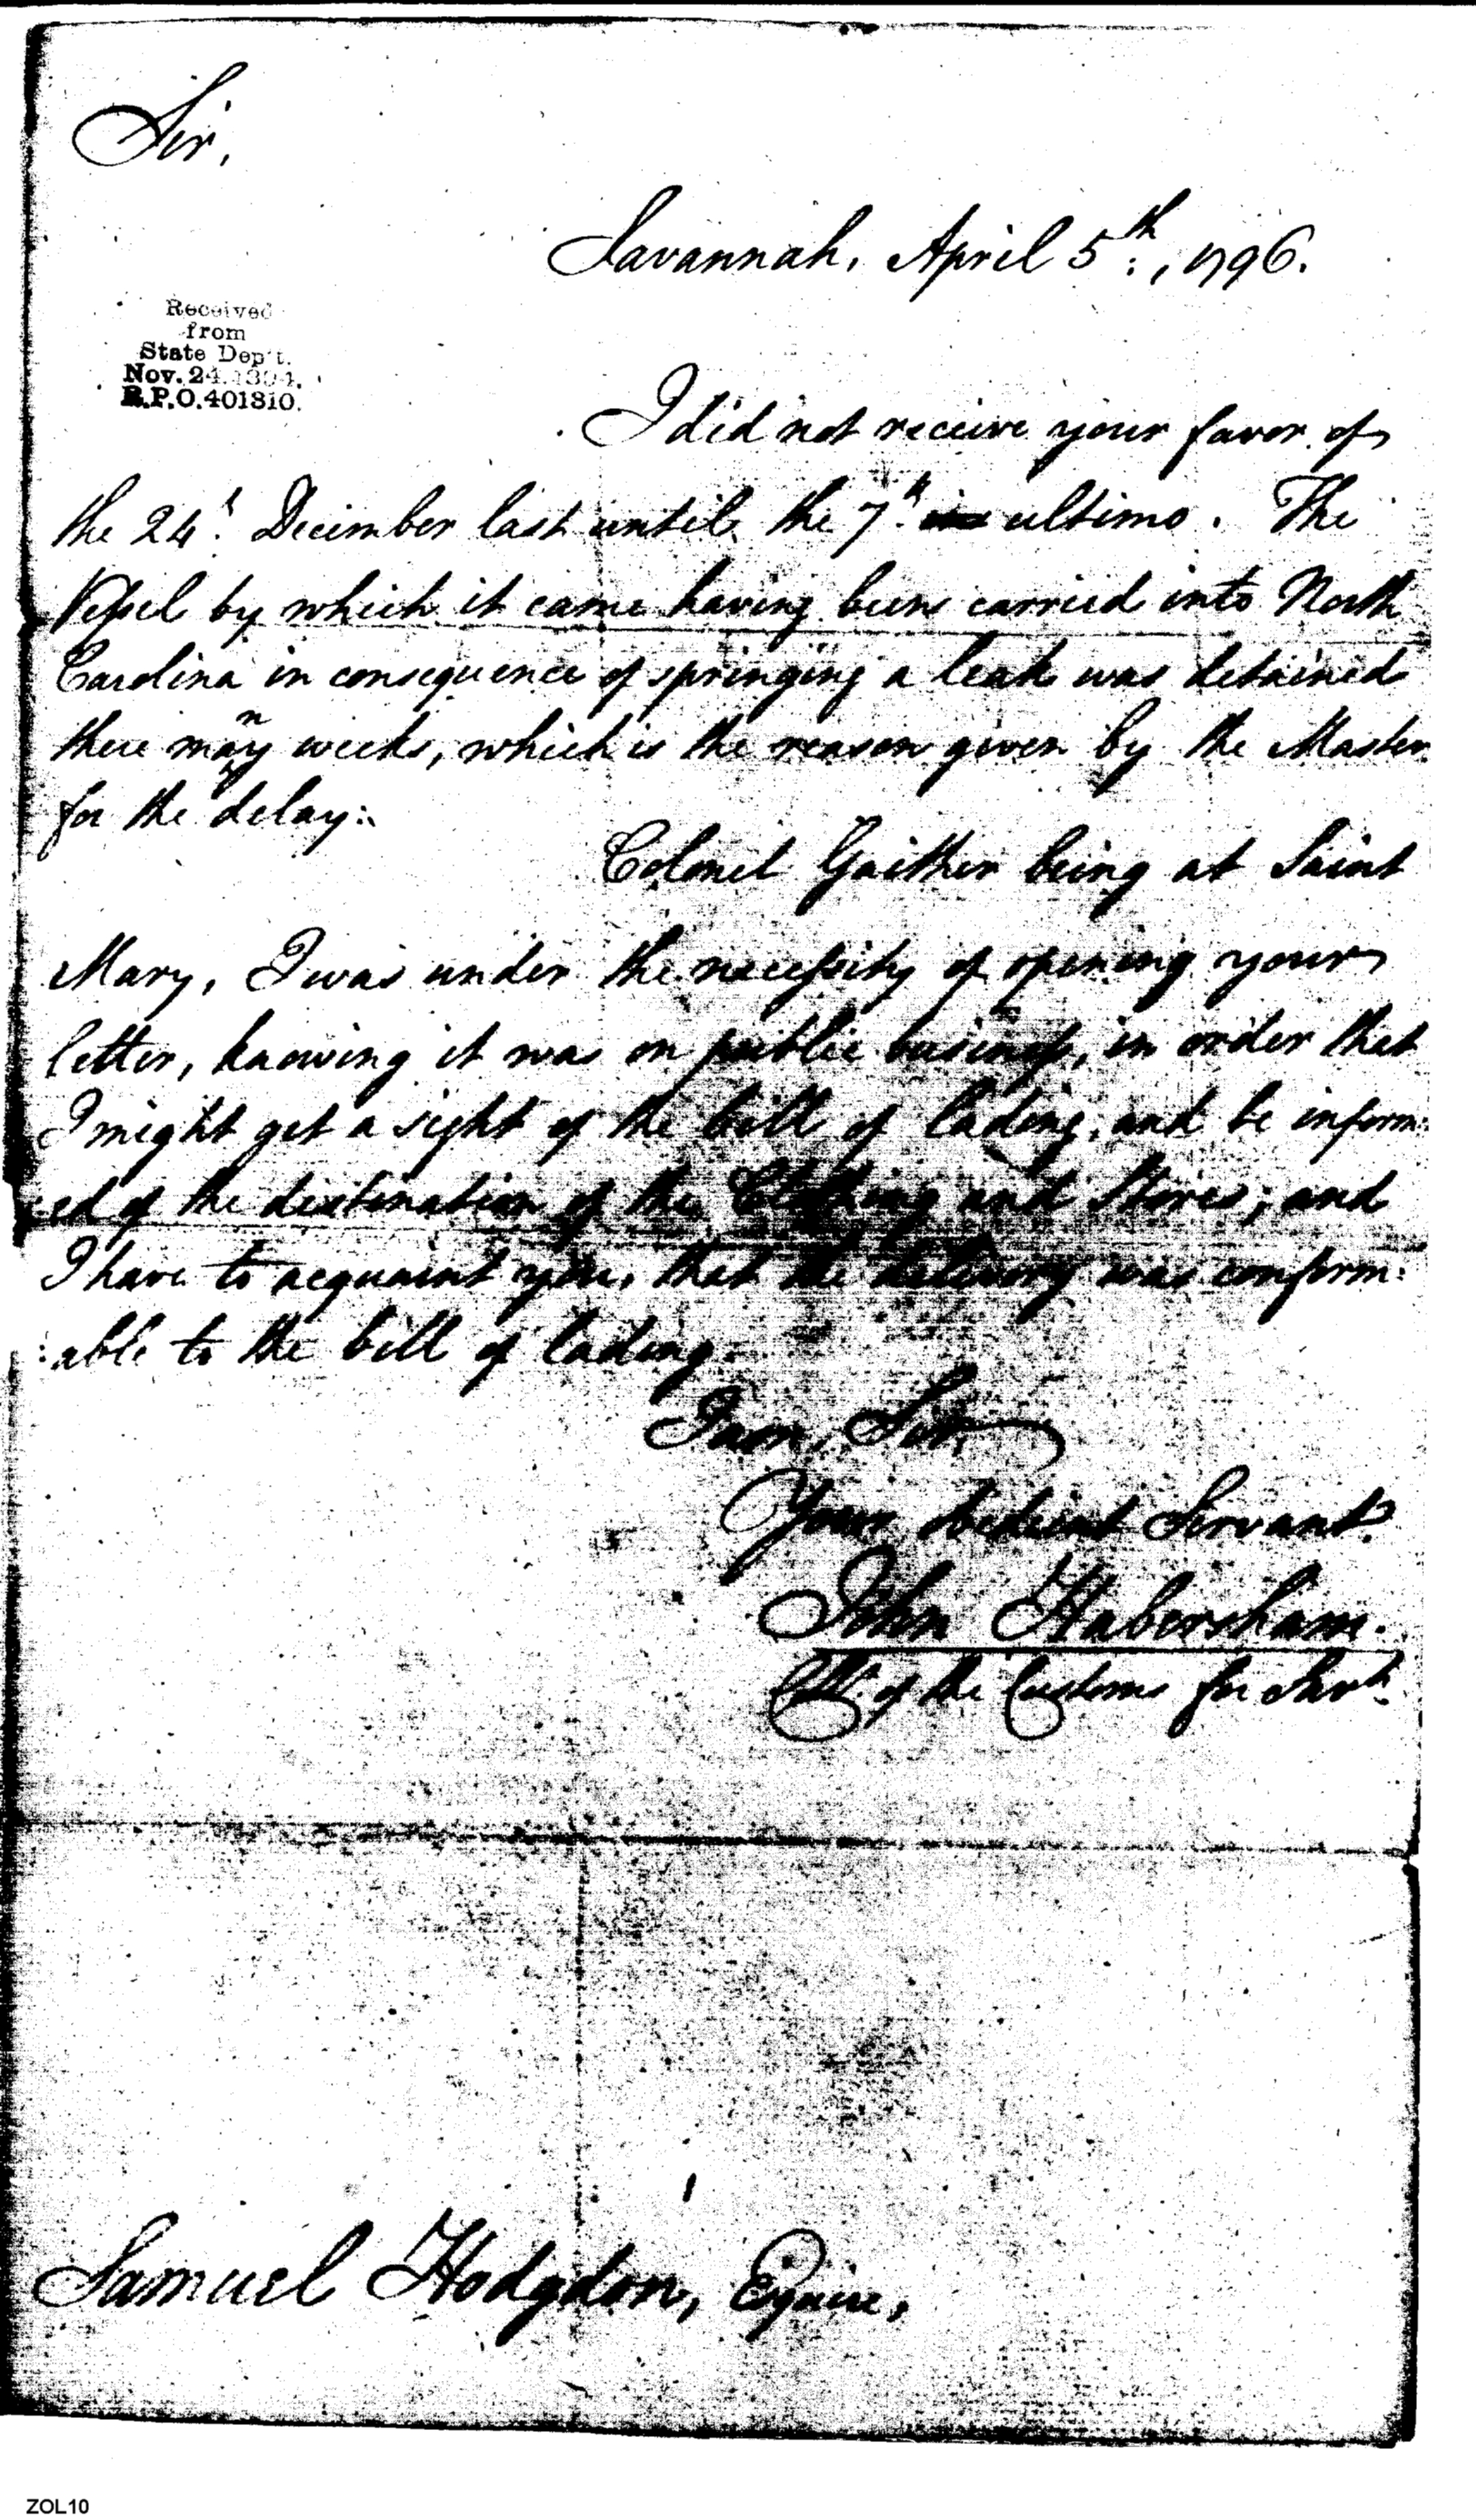 Sir,
Savannah, April 5th, 1796.
Received
from
State Dep't.
Nov. 24. 1894.
R.P.O. 401810.
I did not receive your favor of
the 24th. December last until the 7th. ultimo. The
Vessel by which it came having been carried into North
Carolina in consequence of springing a leak was detained
there many weeks, which is the reason given by the Master
for the delay:
Colonel Gaither being at Saint
Mary, I was under the necessity of opening your
letter, knowing it was on public business, in order that
I might get a sight of the bill of lading, and be inform:
:ed of the destination of the Clothing and Stores; and
I have to acquaint you, that the delivery was conform:
:able to the bill of lading.
I am, Sir,
Your obedient Servant.
John Habersham.
Collr. of the Customs for Savh.
Samuel Hodgdon, Esquire,
ZOL10